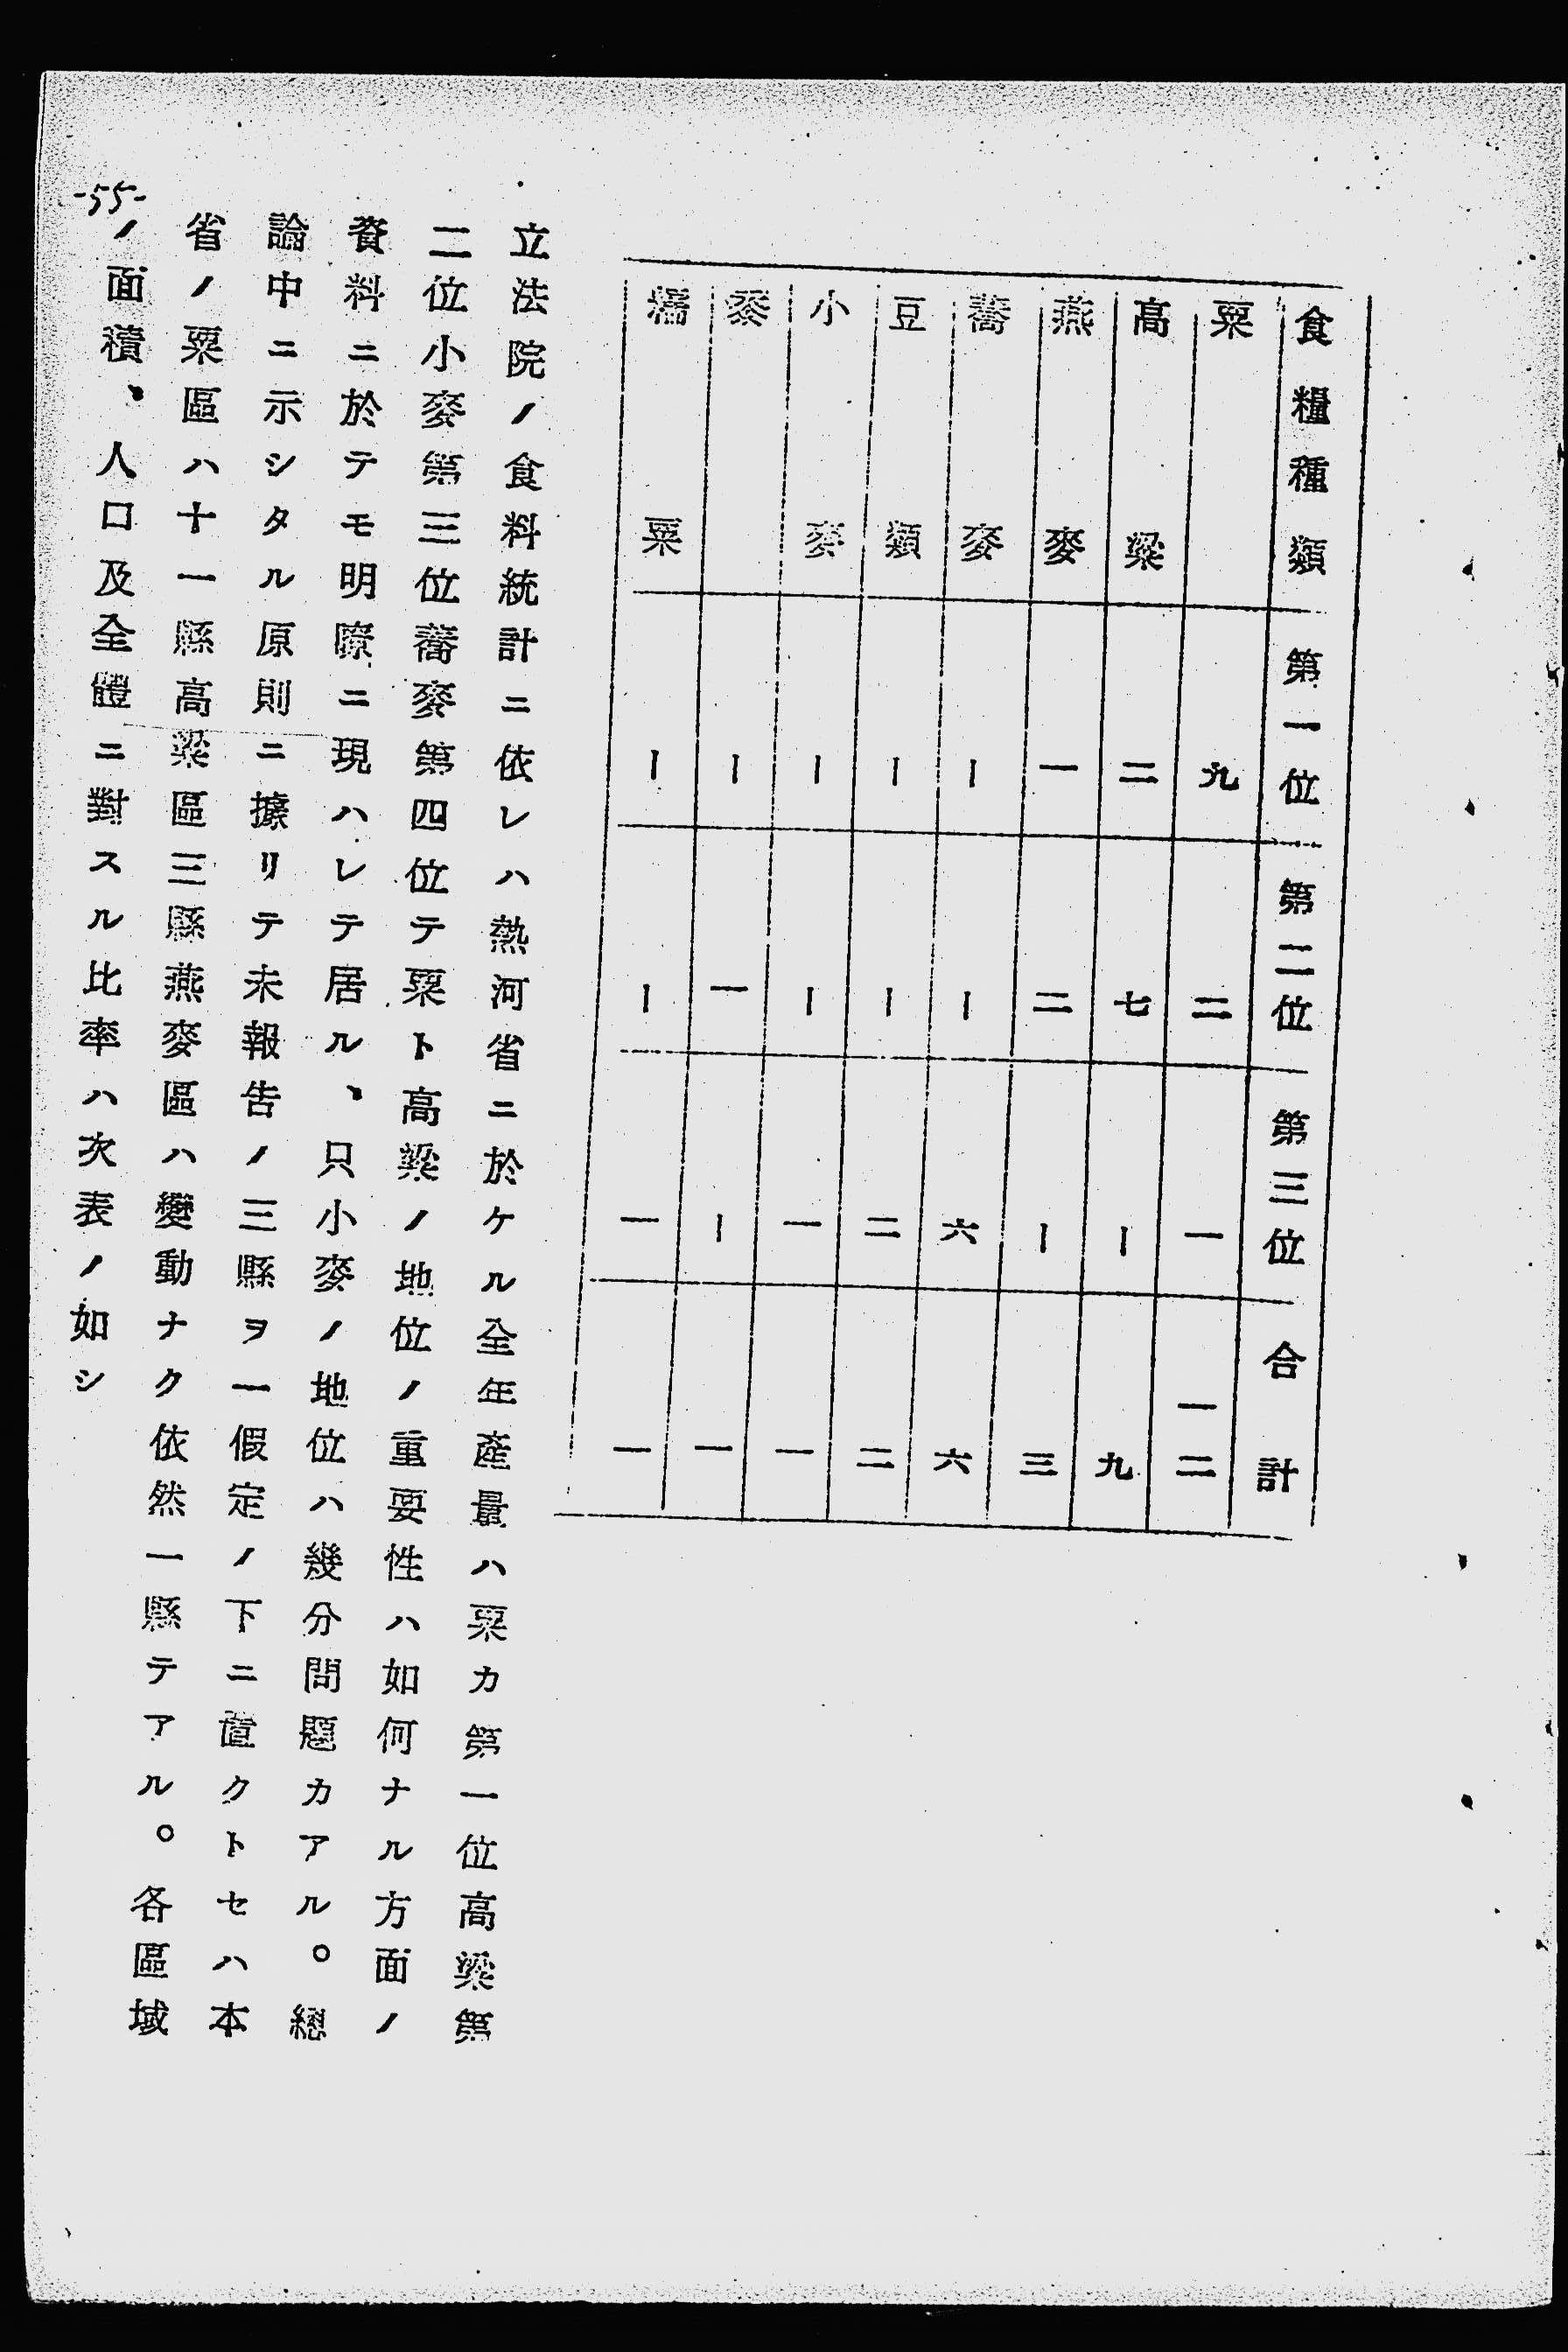 食糧種類 第一位 第二位 第三位 合計
粟 九 二 一 一二
高粱 二 七 ー 九
燕麥 一 二 ー 三
蕎麥 ー ー 六 六
豆類 ー ー 二 二
小麥 ー ー 一 一
黍 ー 一 ー 一
糯粟 ー ー 一 一
立法院ノ食料統計ニ依レハ熱河省ニ於ケル全年產量ハ粟カ第一位高粱第
二位小麥第三位蕎麥第四位テ粟ト高粱ノ地位ノ重要性ハ如何ナル方面ノ
資料ニ於テモ明瞭ニ現ハレテ居ル、只小麥ノ地位ハ幾分問題カアル。總
論中ニ示シタル原則ニ據リテ未報告ノ三縣ヲ一假定ノ下ニ置クトセハ本
省ノ粟區ハ十一縣高粱區三縣燕麥區ハ變動ナク依然一縣テアル。各區域
ノ面積、人口及全體ニ對スル比率ハ次表ノ如シ
-55-